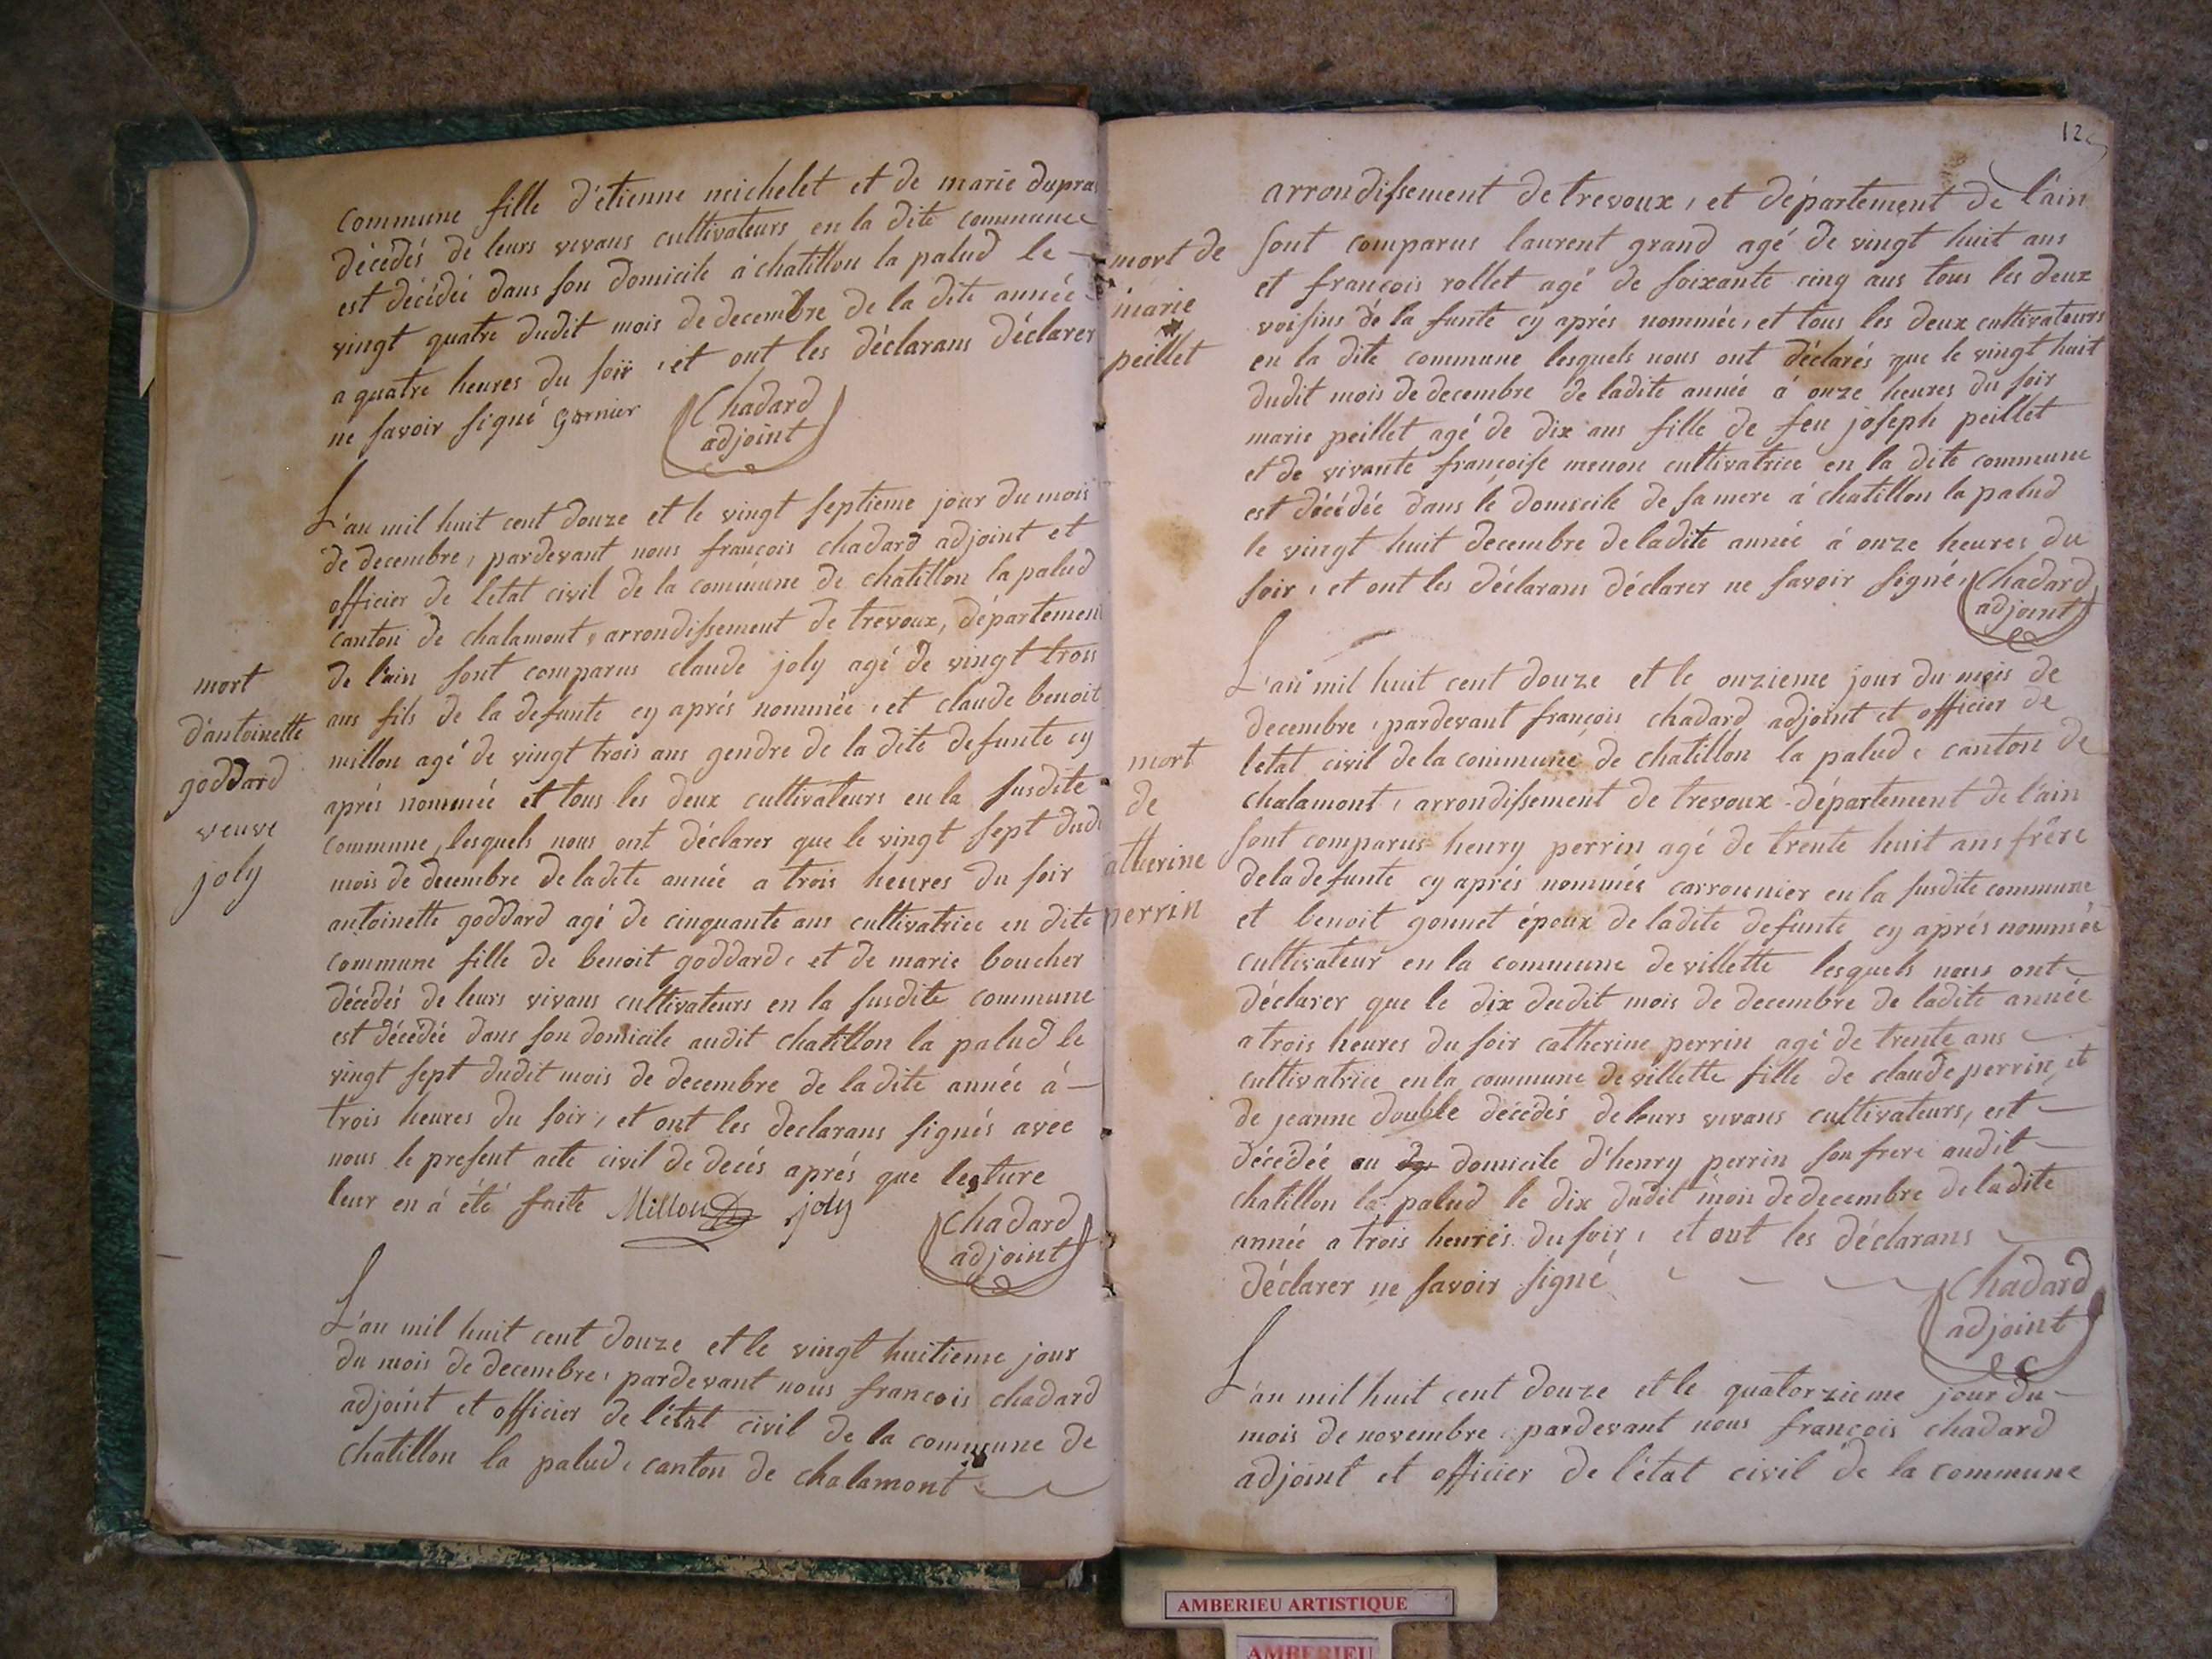 commune fille d'étienne michelet et de marie dupra
décédés de leurs vivans cultivateurs en la dite commune
est décédéé dans son domicile á chatillon la palud le
vingt quatre dudit mois de decembre de la dite année
a quatre heures du soir, et ont les déclarans déclarer
ne savoir signé garnier
Chadard
adjoint
L'an mil huit cent douze et le vingt septieme jour du mois
de decembre, pardevant nous françois chadard adjoint et
officier de letat civil de la commune de chatillon la palud
canton de chalamont, arrondissement de trevoux, département
de l'ain sont comparus claude joly agé de vingt trois
ans fils de la defunte cy aprés nommée, et claude benoit
millon agé de vingt trois ans gendre de la dite defunte cy
aprés nommée et tous les deux cultivateurs en la susdite
commune, lesquels nous ont déclarer que le vingt sept dudi
mois de decembre de ladite année a trois heures du soir
antoinette goddard agé de cinquante ans cultivatrice en dite
commune fille de benoit goddard, et de marie boucher
décédés de leurs vivans cultivateurs en la susdite commune
est décédée dans son domicile audit chatillon la palud le
vingt sept dudit mois de decembre de la dite année á
trois heures du soir, et ont les declarans signés avec
nous le present acte civil de decés aprés que lecture
leur en á été faite Millon joly
Chadard
adjoint
mort
d'antoinette
goddard
veuve
joly
L'an mil huit cent douze et le vingt huitieme jour
du mois de decembre, pardevant nous francois chadard
adjoint et officier de l'état civil de la commune de
chatillon la palud, canton de chalamont
12
arrondissement de trevoux, et département de l'ain
sont comparus laurent grand agé de vingt huit ans
et francois rollet agé de soixante cinq ans tous les deux
voisins de la funte cy aprés nommée, et tous les deux cultivateurs
en la dite commune lesquels nous ont déclarés que le vingt huit
dudit mois de decembre de ladite année á onze heures du soir
marie peillet agé de dix ans fille de feu joseph peillet
et de vivante françoise menon cultivatrice en la dite commune
est décédée dans le domicile de sa mere á chatillon la palud
le vingt huit decembre de ladite année á onze heures du
soir, et ont les déclarans déclarer ne savoir signé, Chadard
adjoint
mort de
marie
peillet
L'an mil huit cent douze et le onzieme jour du mois de
decembre, pardevant françois chadard adjoint et officier de
letat civil de la commune de chatillon la palud, canton de
chalamont, arrondissement de trevoux département de l'ain
sont comparus henry perrin agé de trente huit ans frêre
de la defunte cy aprés nommée carronnier en la susdite commune
et benoit gonnet époux de ladite defunte cy aprés nommée
cultivateur en la commune de villette lesquels nous ont
déclarer que le dix dudit mois de decembre de ladite année
a trois heures du soir catherine perrin agé de trente ans
cultivatrice en la commune de villette fille de claude perrin, et
de jeanne double décédés de leurs vivans cultivateurs, est
décédéé au domicile d'henry perrin son frere audit
chatillon la palud le dix dudit mois de decembre de ladite
année a trois heures du soir, et ont les déclarans
déclarer ne savoir signé
Chadard
adjoint
mort
de
catherine
perrin
L'an mil huit cent douze et le quatorzieme jour du
mois de novembre pardevant nous françois chadard
adjoint et officier de l'état civil de la commune
AMBERIEU ARTISTIQUE
AMBERIEU